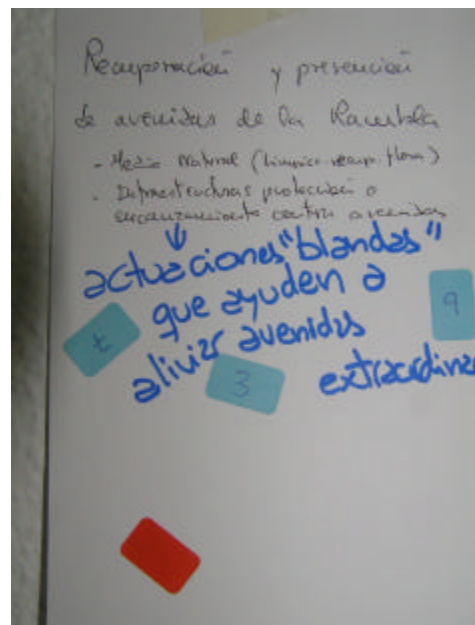 Recuperación y prevención
de avenidas de la Rambla
- Medio Natural (limpieza recup. flora)
- Infraestructuras protección o
encauzamiento contra avenidas
actuaciones "blandas"
que ayuden a
aliviar avenidas
extraordinar
t
3
9